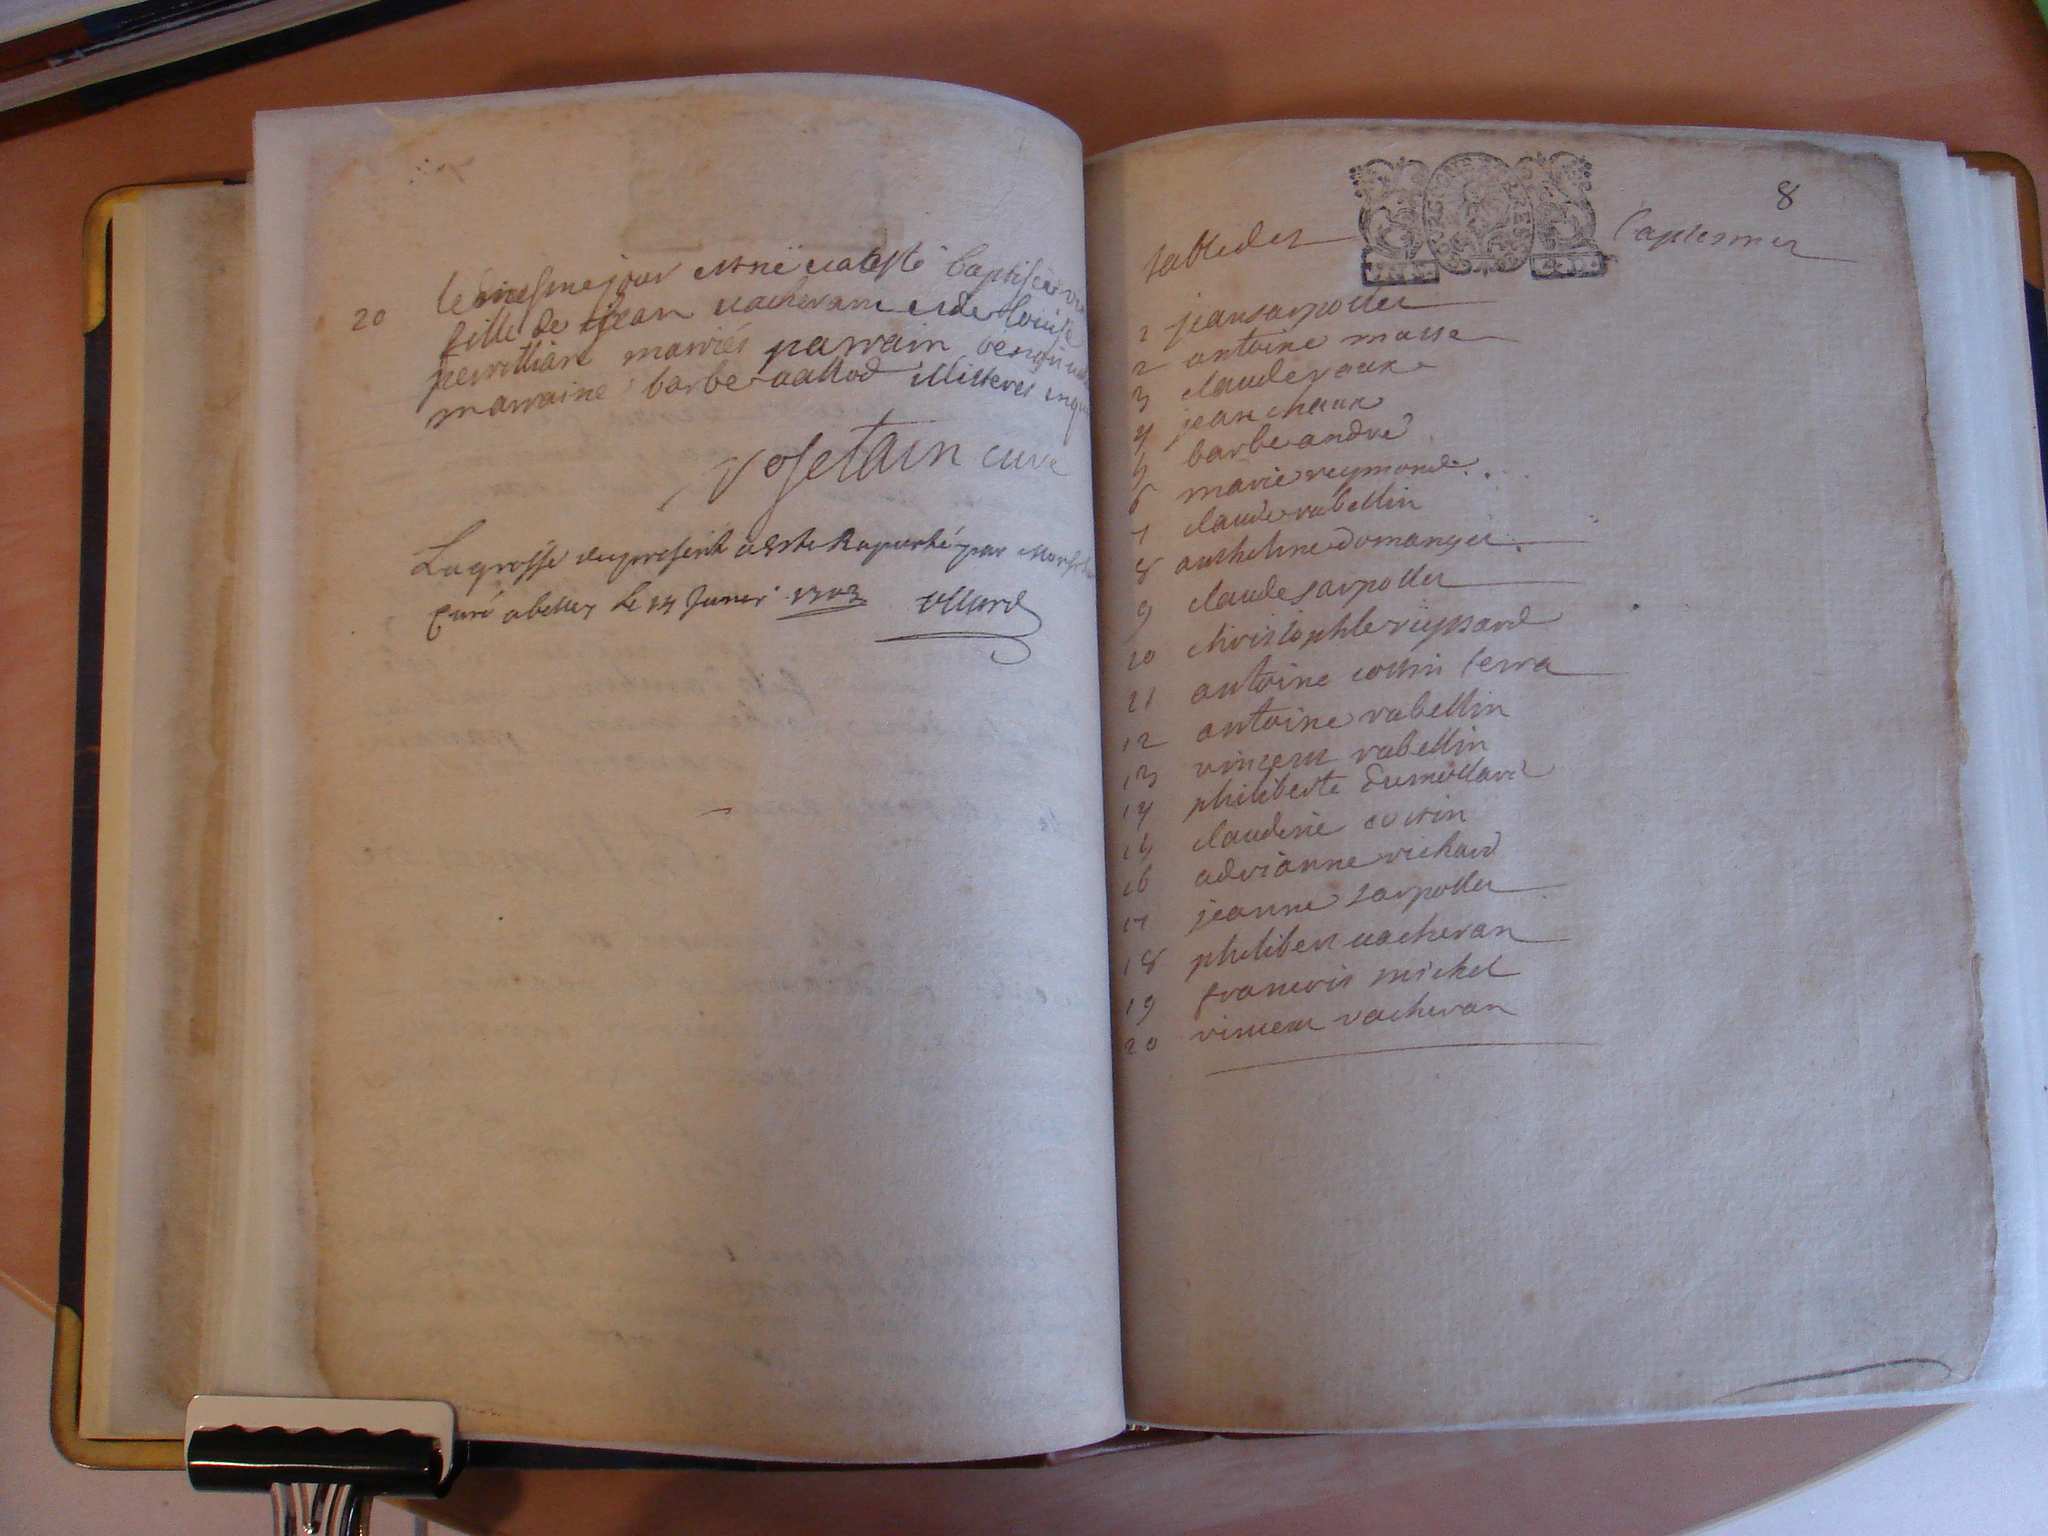 20 le mesme jour est né et a esté baptisée
fille de jean vacheran et de
perrillian mariés parrain
marraine barbe vallod illiteres
vosetain curé
La grosse du present a esté Raporté par
Curé a belley Le 14 Janvier 1703 ollard
8
table des baptesmes
1 jean sarpollet
2 antoine masse
3 claude raux
4 jean chaux
5 barbe andre
6 marie reymond
7 claude rabellin
8 anthelme domanget
9 claude sarpollet
10 christophle
11 antoine collin serra
12 antoine rabellin
13 vincent rabellin
14 philiberte dumollard
15 claudine
16 adrianne richard
17 jeanne sarpollet
18 philibert vacheran
19 francois michel
20 vincent vacheran